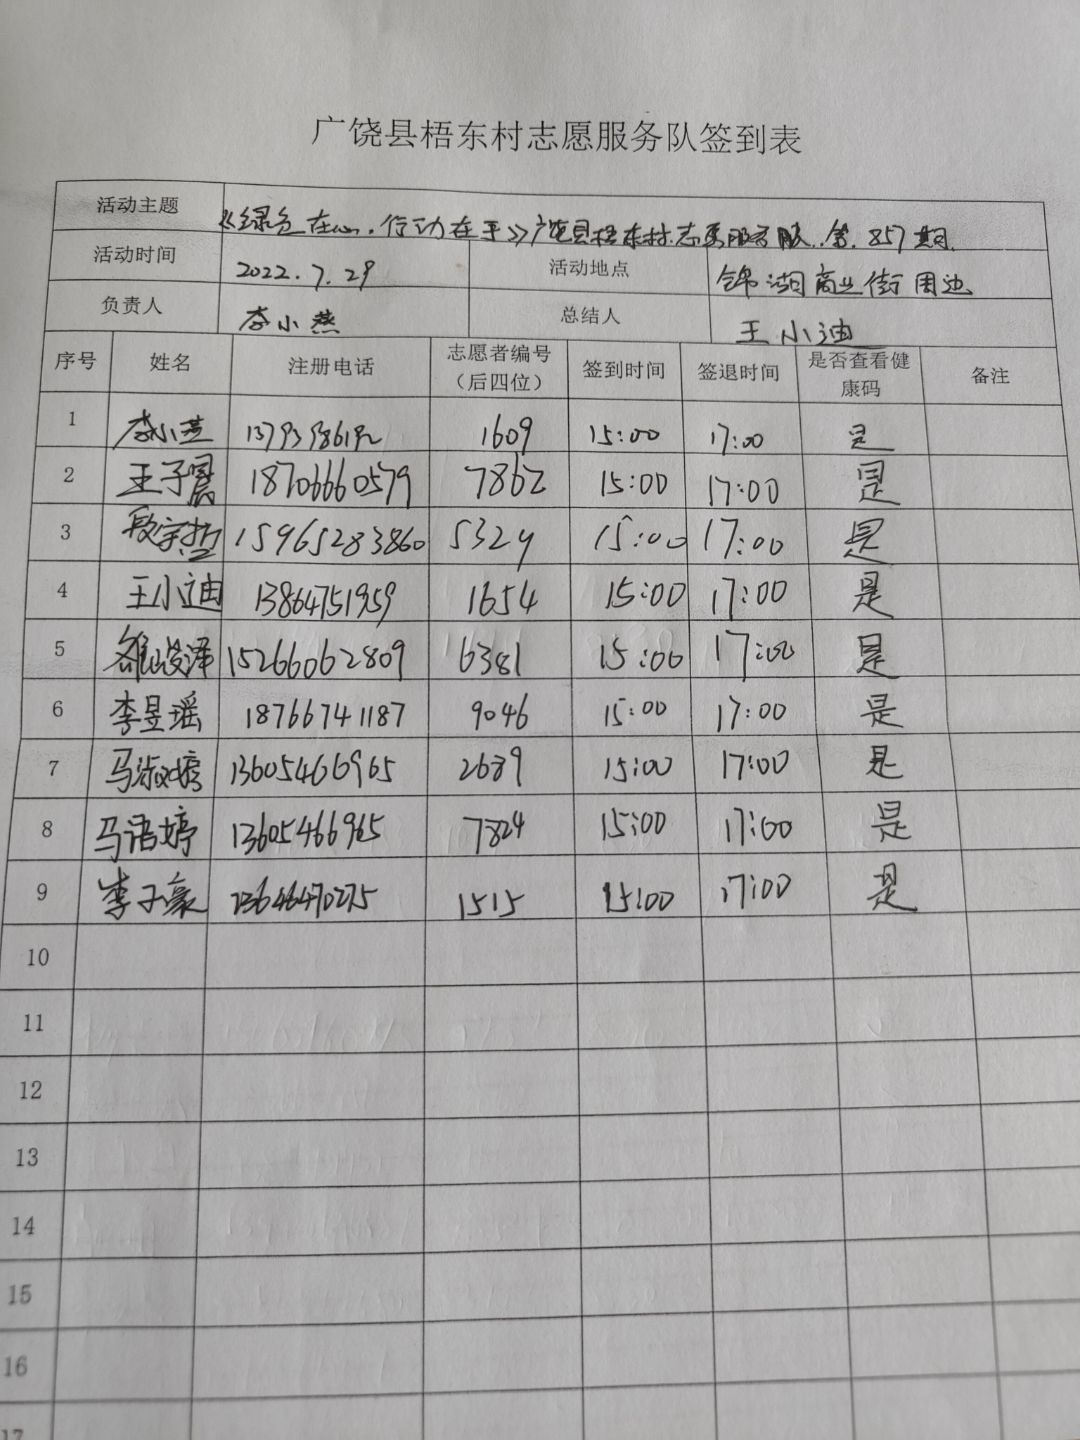 广饶县梧东村志愿服务队签到表
活动主题 《绿色在心.行动在手》广饶县梧东村志愿服务队.第.857期.
活动时间 2022.7.29 活动地点 锦湖商业街周边
负责人 李小燕 总结人 王小迪
序号 姓名 注册电话 志愿者编号（后四位） 签到时间 签退时间 是否查看健康码 备注
1 李小燕 1609 15:00 17:00 是
2 王子 18706660579 7862 15:00 17:00 是
3 段宇哲 15965283860 5324 15:00 17:00 是
4 王小迪 13864751959 1654 15:00 17:00 是
5 泽 15266062809 6381 15:00 17:00 是
6 李昱瑶 18766741187 9046 15:00 17:00 是
7 马淑婷 13605466965 2689 15:00 17:00 是
8 马语婷 13605466965 7824 15:00 17:00 是
9 李子豪 13646470275 1515 15:00 17:00 是
10
11
12
13
14
15
16
17